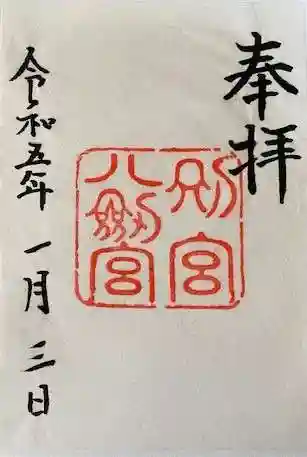 奉拝
別宮
八剣宮
令和五年 一月 三日